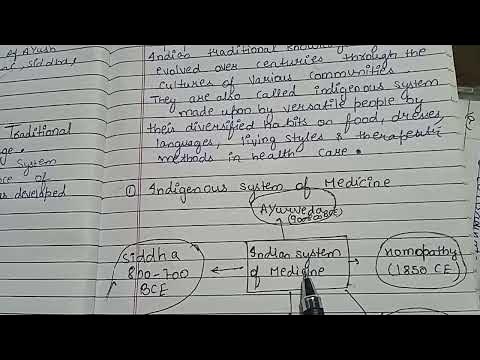 of AYush
Siddha,
Indian traditional
evolved over centuries through the
cultures of various communities
They are also called indigenous system
made upon by versatile people by
their diversified habits on food, dresses,
languages, living styles & therapeutic
methods in health care.
Traditional
System
of
developed
① Indigenous system of Medicine
AYurveda
siddha
800-700
BCE
Indian system
of Medicine
Homopathy
(1850 CE)